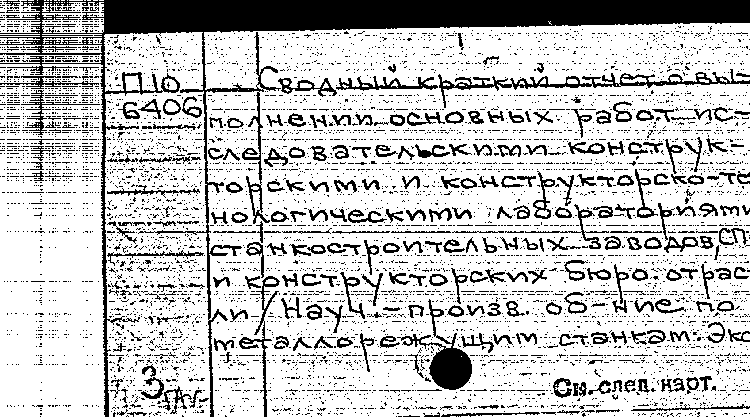 П10
6406
Сводный краткий отчет о вы-
полнении основных работ ис-
следовательскими конструк-
торскими и конструкторско-те
нологическими лабораториями
станкостроительных заводов, СП
и конструкторских бюро отрас
ли / Науч.-произв. об-ние по
металлорежущим станкам. Экс
3
См. след. карт.